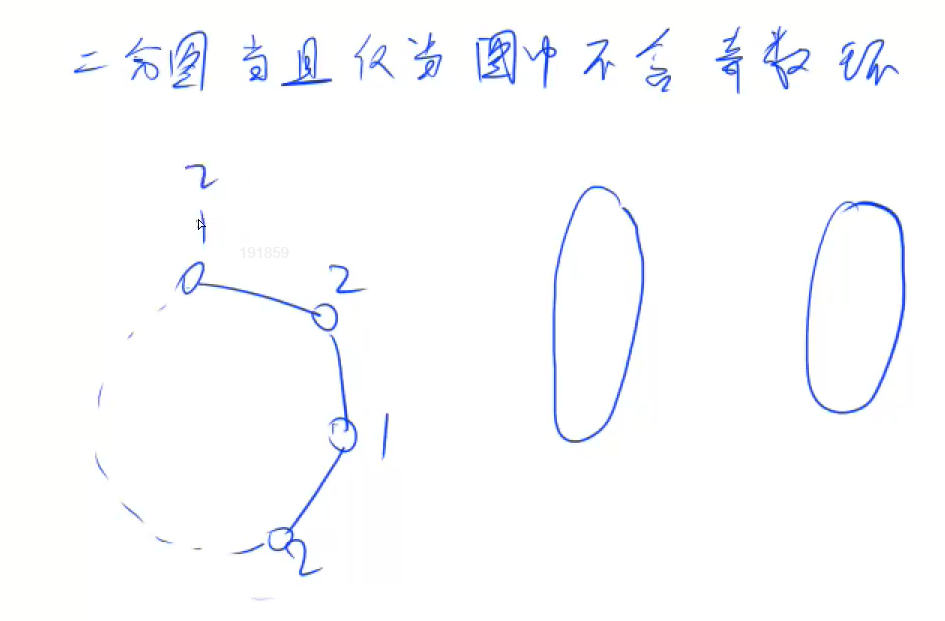 二分图 当且仅当 图中不含 奇数环
2
1
191859
2
1
2